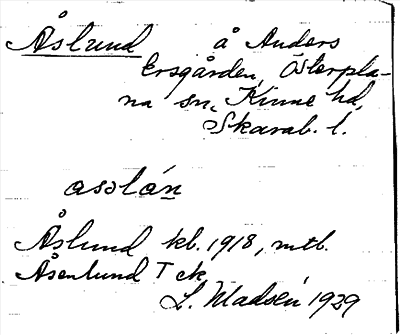 Åslund å Anders
Ersgården, Österpla-
na sn, Kinne hd,
Skarab. l.
asslán
Åslund kb. 1918, mtb.
Åsenlund T ck
L. Madsén 1929